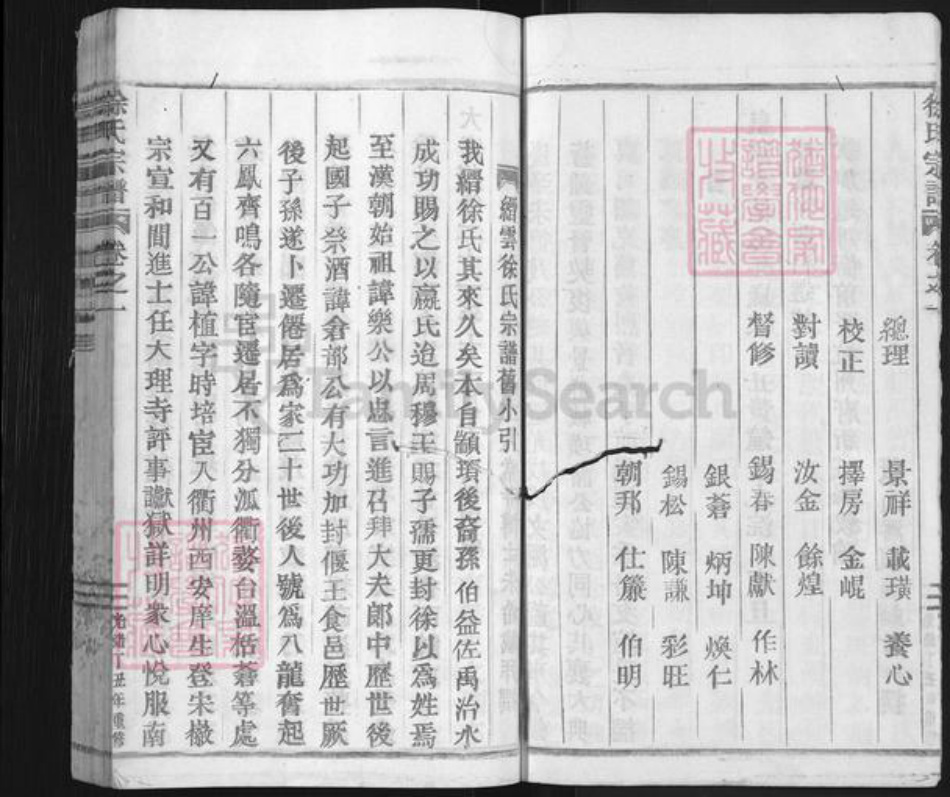 徐氏宗譜 卷之一
總理 景祥 載璜 養心
校正 擇房 金崐
對讀 汝金 餘煌
督修 錫春 陳獻 作林
銀蒼 炳坤 煥仁
錫松 陳謙 彩旺
朝邦 仕簾 伯明
縉雲徐氏宗譜舊小引
我縉徐氏其來久矣本自顓頊後裔孫伯益佐禹治水
成功賜之以嬴氏迨周穆王賜子孺更封徐以爲姓焉
至漢朝始祖諱樂公以忠言進召拜大夫郎中歷世後
起國子祭酒諱倉部公有大功加封偃王食邑歷世厥
後子孫遂卜遷僊居爲家二十世後人號爲八龍奮起
六鳳齊鳴各隨官遷居不獨分派衢婺台溫栝蒼等處
又有百一公諱植字時培宦入衢州西安庠生登宋徽
宗宣和間進士任大理寺評事讞獄詳明衆心悅服南
徐氏宗譜 卷之一
光緒丁丑年重修
FamilySearch